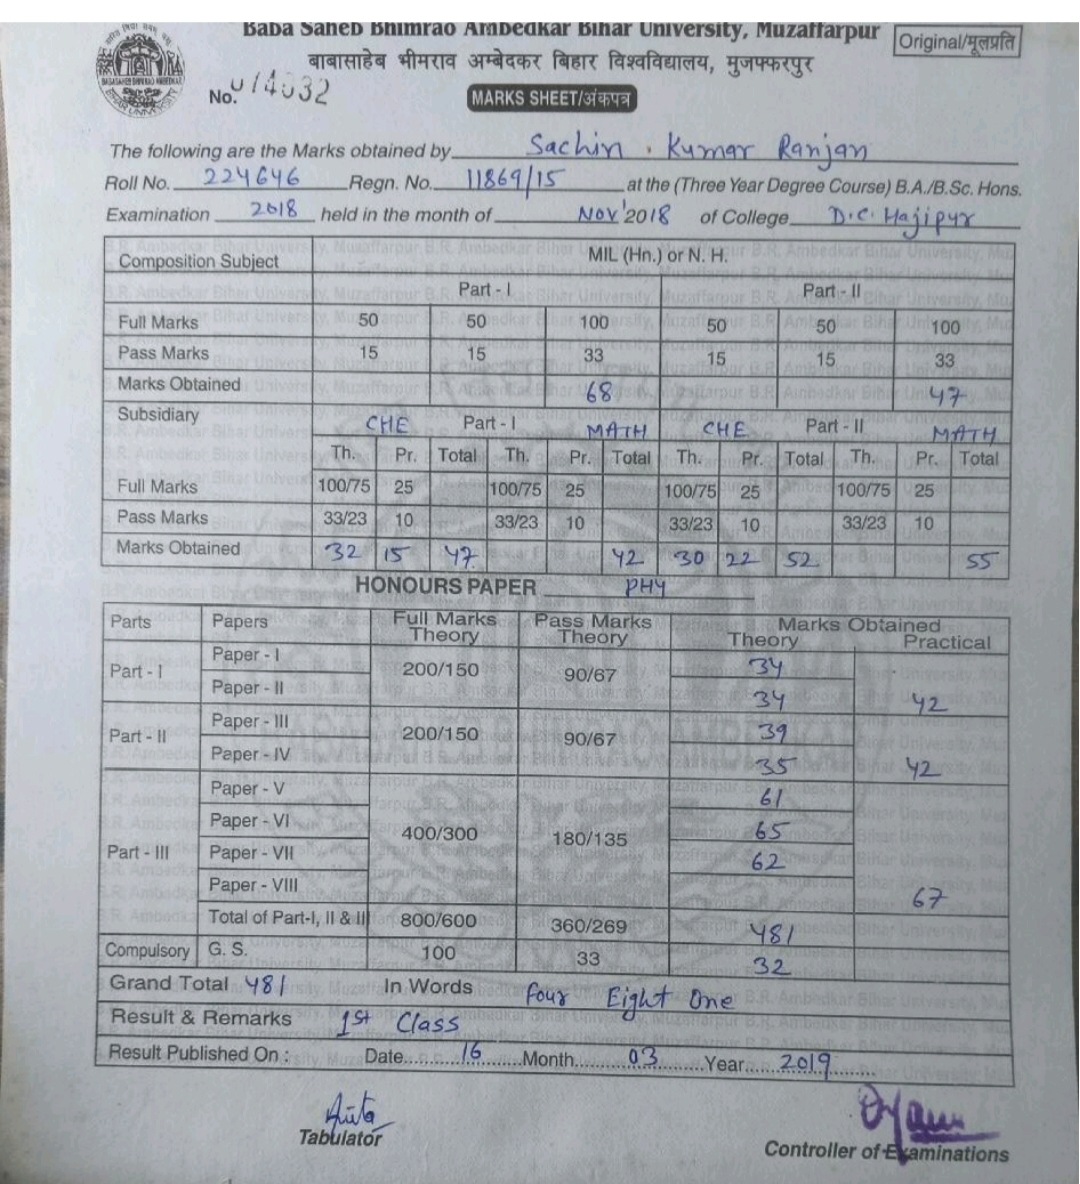 Baba Saheb Bhimrao Ambedkar Bihar University, Muzaffarpur
Original/मूलप्रति
बाबासाहेब भीमराव अम्बेदकर बिहार विश्वविद्यालय, मुजफ्फरपुर
No. 014032
MARKS SHEET/अंकपत्र
The following are the Marks obtained by Sachin Kumar Ranjan
Roll No. 224646 Regn. No. 11869/15 at the (Three Year Degree Course) B.A./B.Sc. Hons.
Examination 2018 held in the month of Nov'2018 of College D.C. Hajipur
Composition Subject MIL (Hn.) or N. H.
Part - I Part - II
Full Marks 50 50 100 50 50 100
Pass Marks 15 15 33 15 15 33
Marks Obtained 68 47
Subsidiary CHE Part - I MATH CHE Part - II MATH
Th. Pr. Total Th. Pr. Total Th. Pr. Total Th. Pr. Total
Full Marks 100/75 25 100/75 25 100/75 25 100/75 25
Pass Marks 33/23 10 33/23 10 33/23 10 33/23 10
Marks Obtained 32 15 47 42 30 22 52 55
HONOURS PAPER PHY
Parts Papers Full Marks Theory Pass Marks Theory Marks Obtained Theory Practical
Part - I Paper - I 200/150 90/67 34
Paper - II 34 42
Part - II Paper - III 200/150 90/67 39
Paper - IV 35 42
Part - III Paper - V 400/300 180/135 61
Paper - VI 65
Paper - VII 62
Paper - VIII 67
Total of Part-I, II & III 800/600 360/269 481
Compulsory G. S. 100 33 32
Grand Total 481 In Words Four Eight One
Result & Remarks 1st Class
Result Published On : Date 16 Month 03 Year 2019
Tabulator
Controller of Examinations